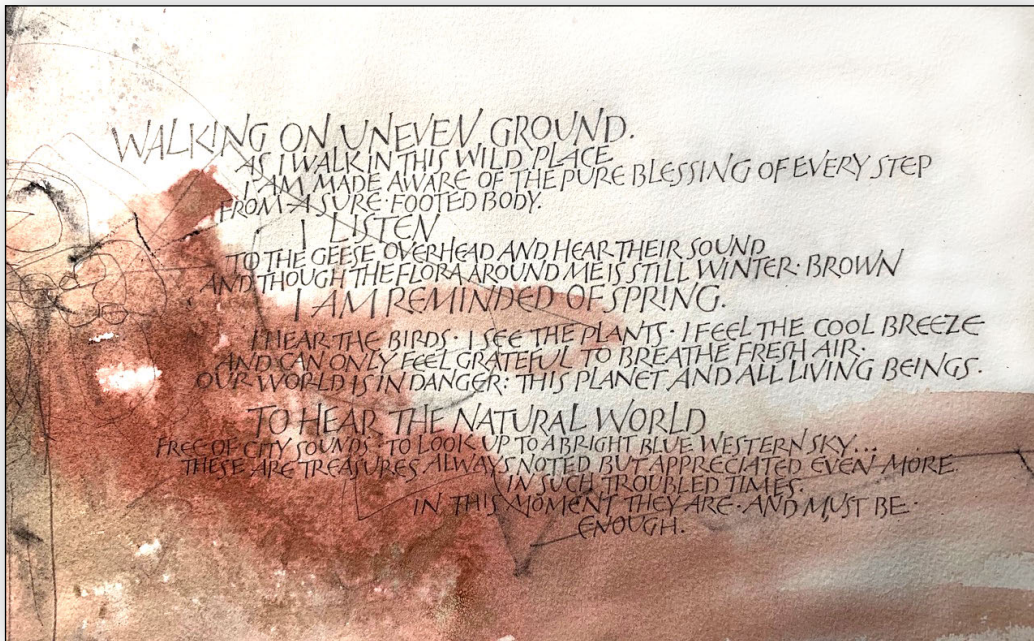 WALKING ON UNEVEN GROUND.
AS I WALK IN THIS WILD PLACE
I AM MADE AWARE OF THE PURE BLESSING OF EVERY STEP
FROM A SURE·FOOTED BODY.
I LISTEN
TO THE GEESE OVERHEAD AND HEAR THEIR SOUND
AND THOUGH THE FLORA AROUND ME IS STILL WINTER·BROWN
I AM REMINDED OF SPRING.
I HEAR THE BIRDS· I SEE THE PLANTS· I FEEL THE COOL BREEZE
AND CAN ONLY FEEL GRATEFUL TO BREATHE FRESH AIR.
OUR WORLD IS IN DANGER: THIS PLANET AND ALL LIVING BEINGS.
TO HEAR THE NATURAL WORLD
FREE OF CITY SOUNDS· TO LOOK UP TO A BRIGHT BLUE WESTERN SKY...
THESE ARE TREASURES ALWAYS NOTED BUT APPRECIATED EVEN MORE
IN SUCH TROUBLED TIMES.
IN THIS MOMENT THEY ARE·AND MUST BE·
ENOUGH.